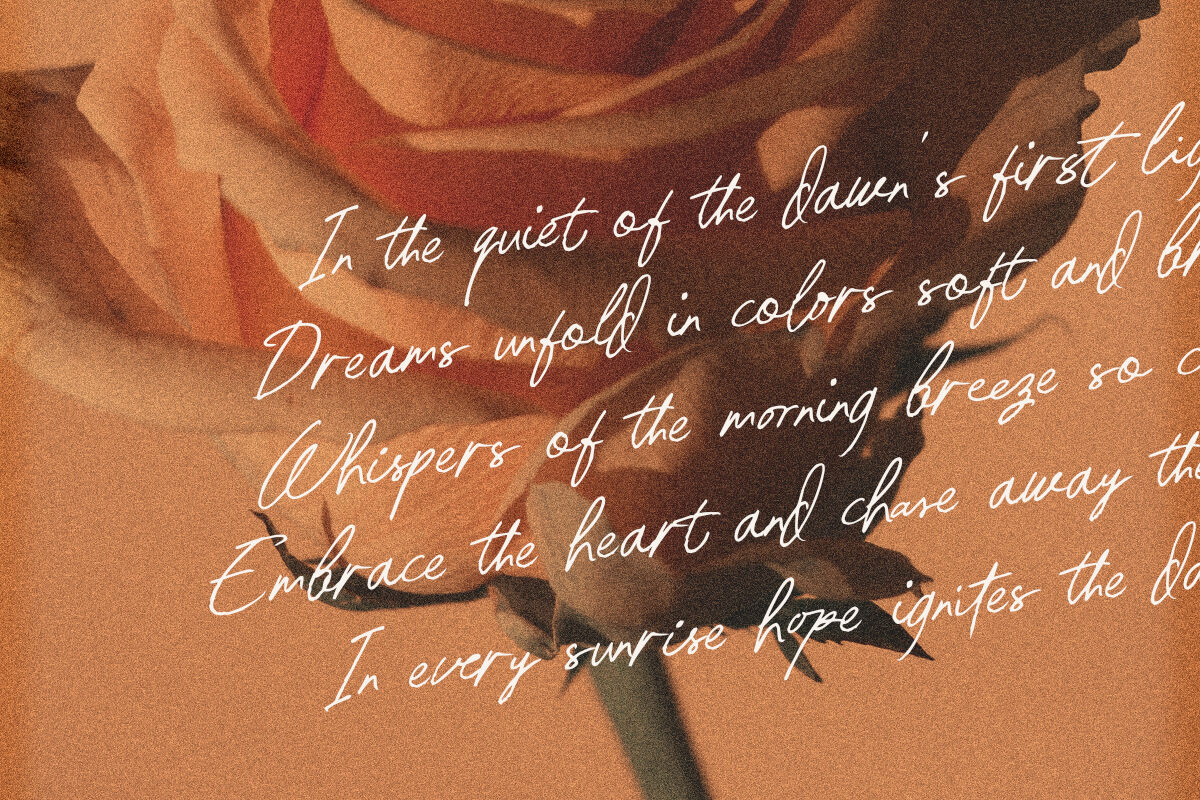 In the quiet of the dawn's first
Dreams unfold in colors soft and
Whispers of the morning breeze so
Embrace the heart and chase away the
In every sunrise hope ignites the